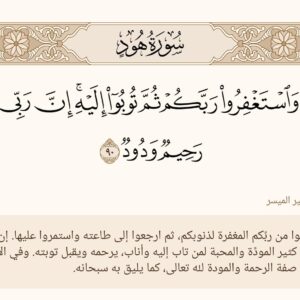 سُورَةُ هُودٍ
وَٱسْتَغْفِرُوا۟ رَبَّكُمْ ثُمَّ تُوبُوٓا۟ إِلَيْهِ ۚ إِنَّ رَبِّى
رَحِيمٌ وَدُودٌ ٩٠
ير الميسر
وا من ربِّكم المغفرة لذنوبكم، ثم ارجعوا إلى طاعته واستمروا عليها. إن
كثير المودَّة والمحبة لمن تاب إليه وأناب، يرحمه ويقبل توبته. وفي الآ
صفة الرحمة والمودة لله تعالى، كما يليق به سبحانه.